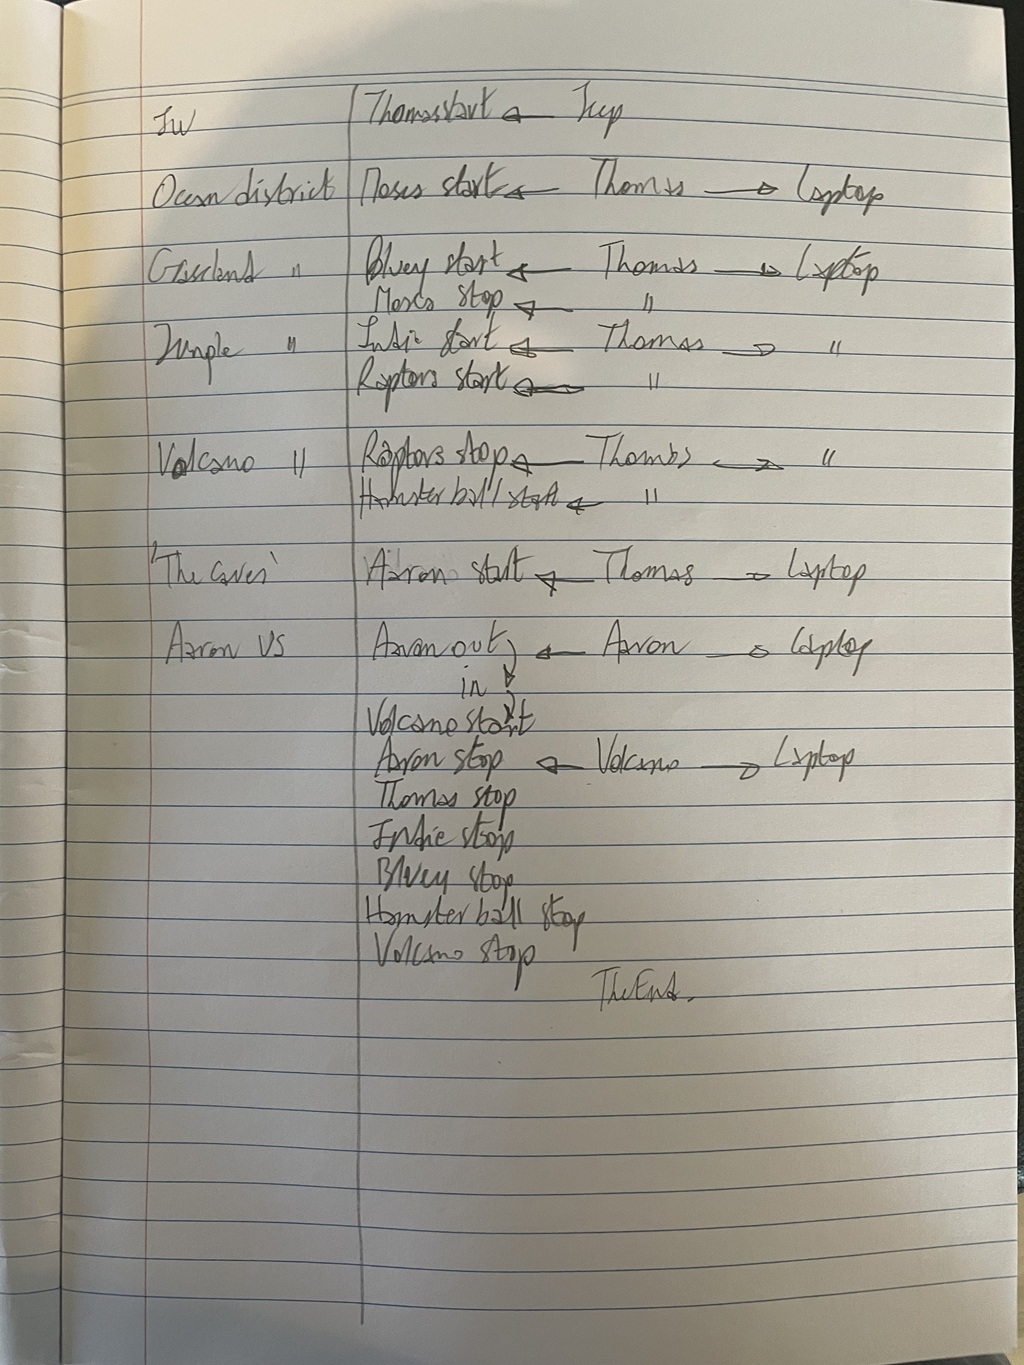 JW Thomas start ← Jeep
Ocean district Moses start ← Thomas → Laptop
Grassland " Bluey start ← Thomas → Laptop
Moses stop ← "
Jungle " Indie start ← Thomas → "
Raptors start ← "
Volcano " Raptors stop ← Thomas → "
Hamster ball start ← "
'The Caves' Aaron start ← Thomas → Laptop
Aaron VS Aaron out ← Aaron → Laptop
in
Volcano start
Aaron stop ← Volcano → Laptop
Thomas stop
Indie stop
Bluey stop
Hamster ball stop
Volcano stop
The End.